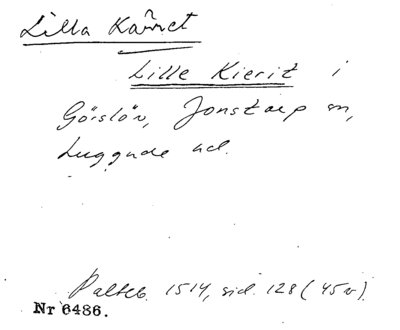 Lilla Kärret
Lille Kierit i
Görslöv, Jonstorp sn,
Luggude hd.
Palteb. 1514, sid. 128 (45v)
Nr 6486.